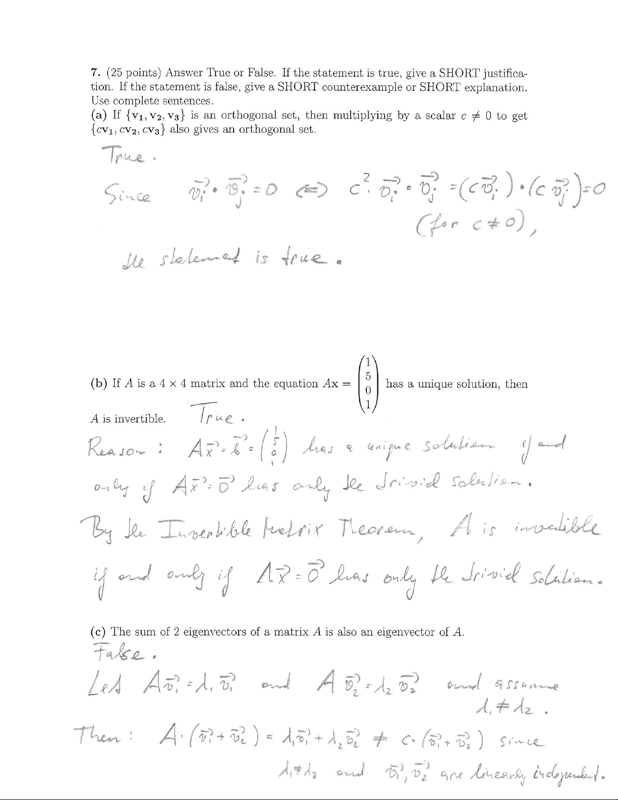 7. (25 points) Answer True or False. If the statement is true, give a SHORT justifica-
tion. If the statement is false, give a SHORT counterexample or SHORT explanation.
Use complete sentences.
(a) If {v₁, v₂, v₃} is an orthogonal set, then multiplying by a scalar c ≠ 0 to get
{cv₁, cv₂, cv₃} also gives an orthogonal set.
True.
Since v⃗ᵢ · v⃗ⱼ = 0 ⟺ c² · v⃗ᵢ · v⃗ⱼ = (c v⃗ᵢ) · (c v⃗ⱼ) = 0
(for c ≠ 0),
the statement is true.
(b) If A is a 4 × 4 matrix and the equation Ax = (1 5 0 1) has a unique solution, then
A is invertible. True.
Reason: Ax⃗ = b⃗ = (1 5 0 1) has a unique solution if and
only if Ax⃗ = 0⃗ has only the trivial solution.
By the Invertible Matrix Theorem, A is invertible
if and only if Ax⃗ = 0⃗ has only the trivial solution.
(c) The sum of 2 eigenvectors of a matrix A is also an eigenvector of A.
False.
Let Av⃗₁ = λ₁ v⃗₁ and A v⃗₂ = λ₂ v⃗₂ and assume
λ₁ ≠ λ₂.
Then: A · (v⃗₁ + v⃗₂) = λ₁v⃗₁ + λ₂v⃗₂ ≠ c · (v⃗₁ + v⃗₂) since
λ₁ ≠ λ₂ and v⃗₁, v⃗₂ are linearly independent.